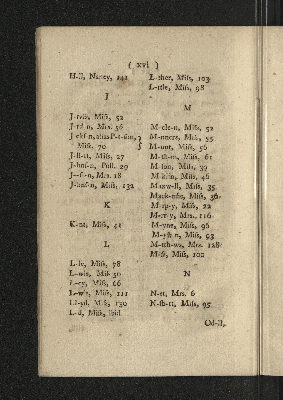 ( xvi )
H-ll, Nancy, 141
J
J-rvis, Miſs, 52
J-rd-n, Mrs. 56
J-ckſ-n, alias P-t-ſ-n,
Miſs. 70
J-ll-tt, Miſs, 27
J-hnſ-n, Poll. 29
J-ff-n, Mrs. 18
J-hnſ-n, Miſs, 132
K
K-nt, Miſs, 41
L
L-ſe, Miſs, 78
L-wis, Miſs 50
L-cy, Miſs, 66
L-w-s, Miſs, 111
Ll-yd, Miſs, 130
L-d, Miſs, ibid
L-ſher, Miſs, 103
L-ttle, Miſs, 98
M
M-cle-n, Miſs, 52
M-nners, Miſs, 55
M-unt, Miſs, 56
M-th-n, Miſs, 61
M-lton, Miſs, 39
M-kl-n, Miſs, 46
Maxw-ll, Miſs, 35
Mack-nſie, Miſs, 36
M-rp-y, Miſs, 22
M-rr-y, Mrs, 116
M-yne, Miſs, 96
M-rſh-n, Miſs, 93
M-tth-ws, Mrs. 128
M-ſe, Miſs, 100
N
N-tt, Mrs. 6
N-ſb-tt, Miſs, 95
Od-ll,